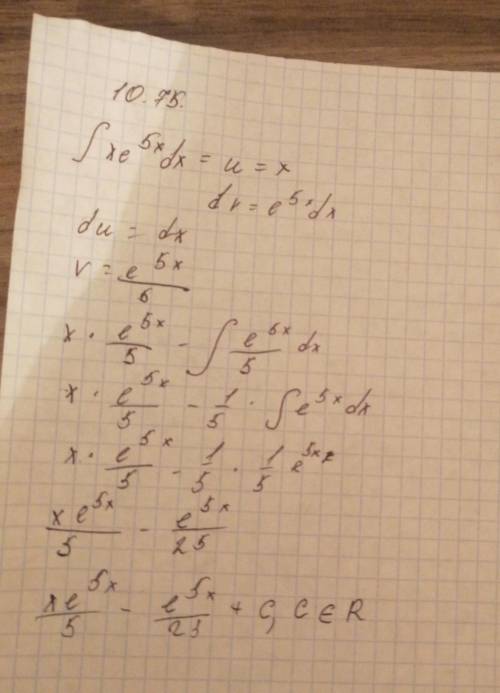 10.75.
∫ x e^5x dx = u = x
dv = e^5x dx
du = dx
v = e^5x / 5
x · e^5x / 5 - ∫ e^5x / 5 dx
x · e^5x / 5 - 1/5 · ∫ e^5x dx
x · e^5x / 5 - 1/5 · 1/5 e^5x
x e^5x / 5 - e^5x / 25
x e^5x / 5 - e^5x / 25 + C, C ∈ R